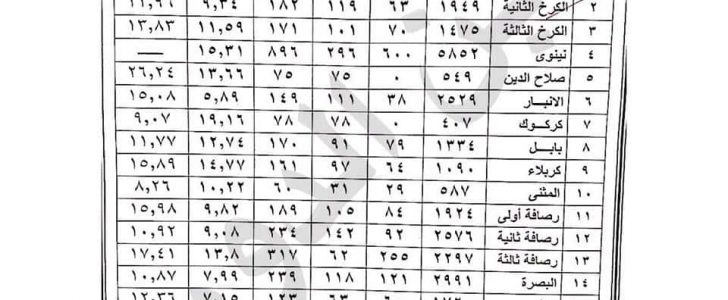 ٢ الكرخ الثانية ١٩٤٩ ٦٣ ١١٩ ١٨٢ ٩,٣٤ ١١,٩٦
٣ الكرخ الثالثة ١٤٧٥ ٧٠ ١٠١ ١٧١ ١١,٥٩ ١٣,٨٣
٤ نينوى ٥٨٥٢ ٦٠٠ ٢٩٦ ٨٩٦ ١٥,٣١ —
٥ صلاح الدين ٥٤٩ ٠ ٧٥ ٧٥ ١٣,٦٦ ٢٦,٢٤
٦ الانبار ٢٥٢٩ ٣٨ ١١١ ١٤٩ ٥,٨٩ ١٥,٠٨
٧ كركوك ٤٠٧ ٠ ٧٨ ٧٨ ١٩,١٦ ٩,٠٧
٨ بابل ١٣٣٤ ٧٩ ٩١ ١٧٠ ١٢,٧٤ ١١,٧٧
٩ كربلاء ١٠٩٠ ٦٤ ٩٧ ١٦١ ١٤,٧٧ ١٥,٨٩
١٠ المثنى ٥٨٧ ٢٩ ٣١ ٦٠ ١٠,٢٢ ٨,٢٦
١١ رصافة أولى ١٩٢٤ ٨٤ ١٠٥ ١٨٩ ٩,٨٢ ١٥,٩٨
١٢ رصافة ثانية ٢٥٧٦ ٩٢ ١٤٢ ٢٣٤ ٩,٠٨ ١٠,٩٢
١٣ رصافة ثالثة ٢٢٩٧ ٢٥٥ ٦٢ ٣١٧ ١٣,٨ ١٧,٤١
١٤ البصرة ٢٩٩١ ١٢١ ١١٨ ٢٣٩ ٧,٩٩ ١٠,٨٧
٦٣ ٦٠ ١٢٣ ٧,١٥ ١٢,٣٦